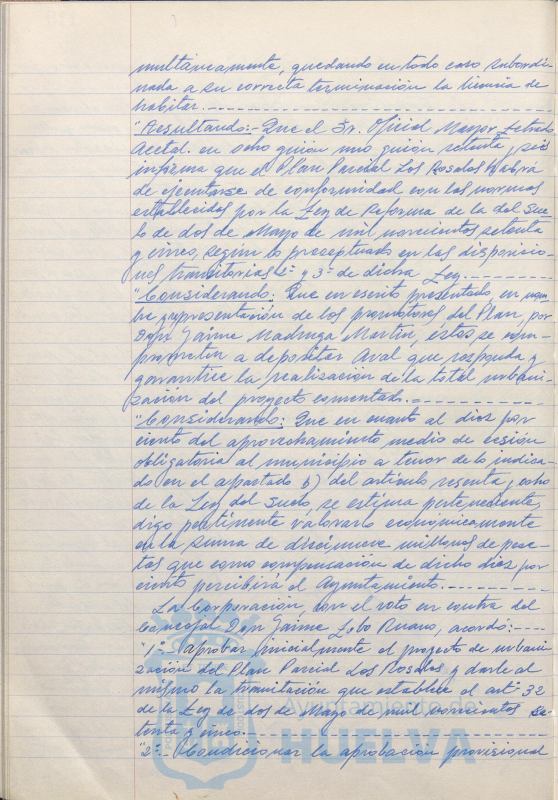 multáneamente, quedando en todo caso subordi-
nada a su correcta terminación la licencia de
habitar.
"Resultando:- Que el Sr. Oficial Mayor Letrado
Acctal. en ocho guión uno guión setenta y seis
informa que el Plan Parcial Los Rosales habrá
de ejecutarse de conformidad con las normas
establecidas por la Ley de Reforma de la del Sue-
lo de dos de Mayo de mil novecientos setenta
y cinco, según lo preseptuado en las disposicio-
nes transitorias y 3ª de dicha Ley.
"Considerando: Que en escrito presentado en nom-
bre y representación de los promotores del Plan, por
Don Jaime Madruga Martín, éstos se com-
prometen a depositar Aval que responda y
garantice la realización de la total urbani-
zación del proyecto comentado.
"Considerando: Que en cuanto al diez por
ciento del aprovechamiento medio de cesión
obligatoria al municipio a tenor de lo indica-
do en el apartado b) del artículo sesenta y ocho
de la Ley del Suelo, se estima
digo pertinente valorarlo económicamente
en la suma de diecinueve millones de pese-
tas que como compensación de dicho diez por
ciento percibirá el Ayuntamiento.
La Corporación, con el voto en contra del
Concejal Don Jaime Lobo Ruano, acordó:
"1º.- Aprobar inicialmente el proyecto de urbani-
zación del Plan Parcial Los Rosales y darle al
mismo la tramitación que establece el artº 32
de la Ley de dos de Mayo de mil novecientos se-
tenta y cinco.
"2º.- Condicionar la aprobación provisional
Ayuntamiento de
HUELVA